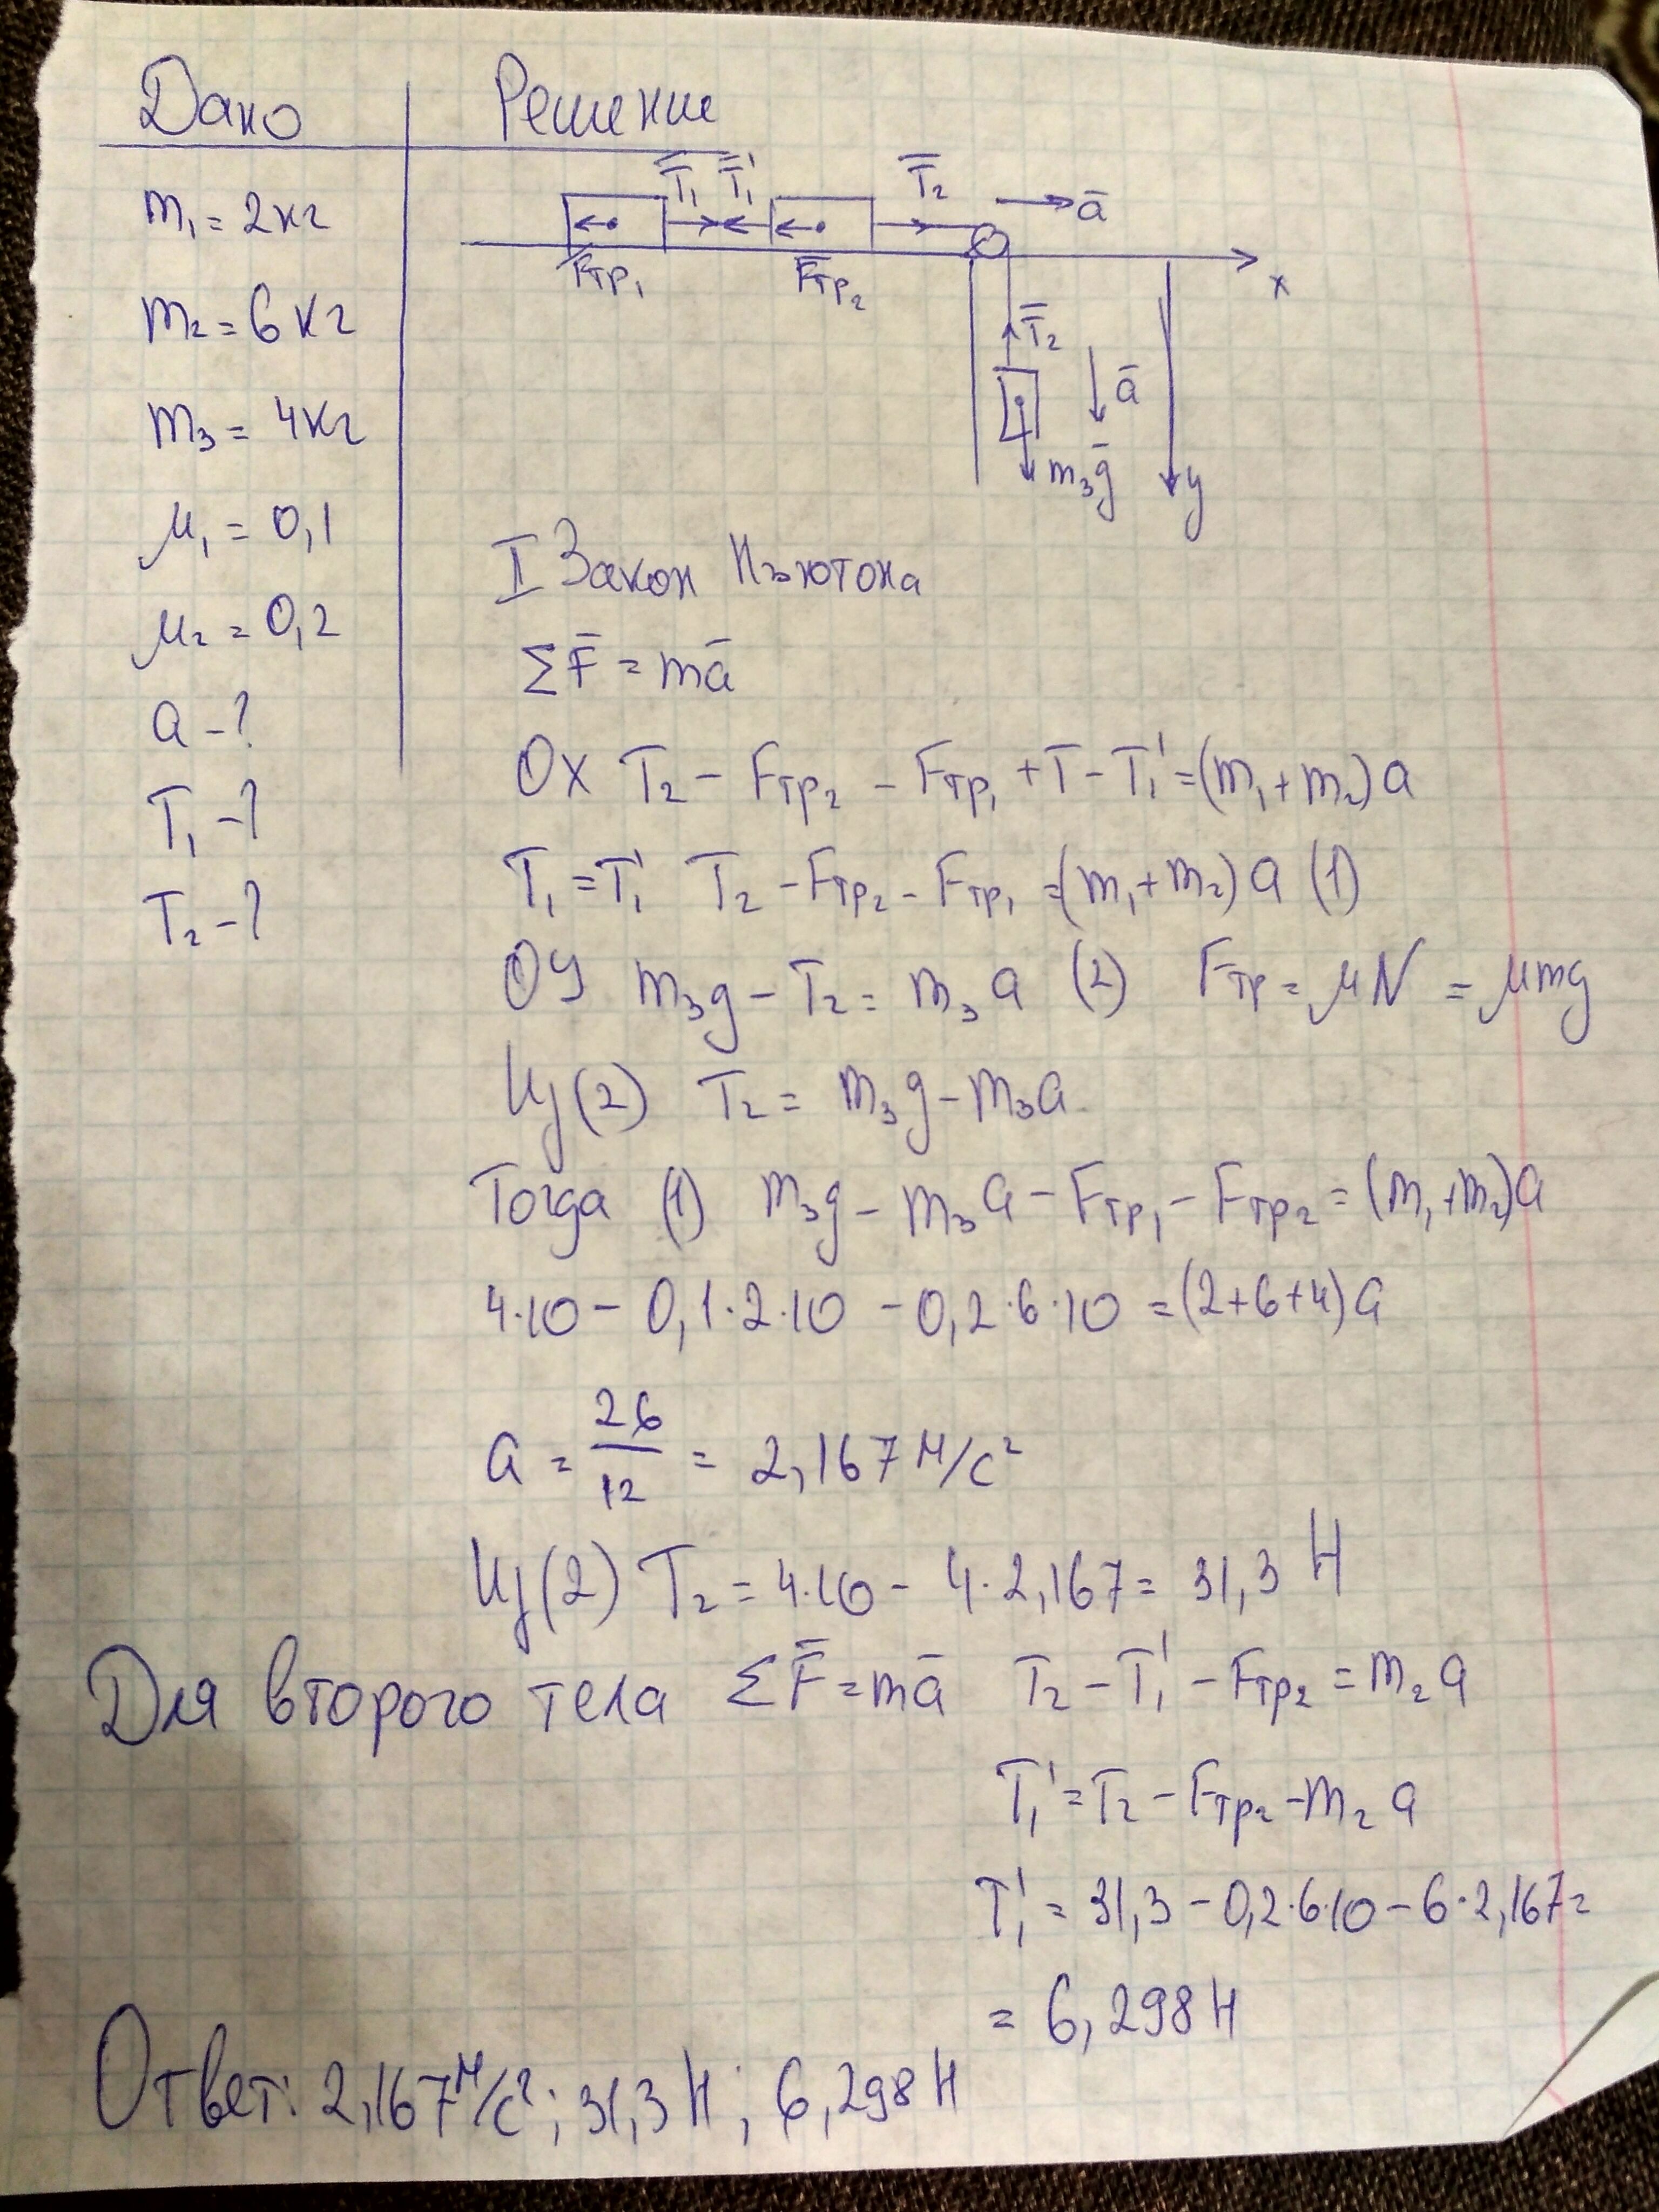 Дано
Решение
m₁ = 2кг
m₂ = 6кг
m₃ = 4кг
μ₁ = 0,1
μ₂ = 0,2
a - ?
T₁ - ?
T₂ - ?
T̅₁ T̅₁' T̅₂ a̅
Fтр₁ F̅тр₂ x
T̅₂
a̅
m₃g̅ y
II Закон Ньютона
ΣF̅ = ma̅
OX T₂ - Fтр₂ - Fтр₁ + T - T₁' = (m₁+m₂)a
T₁ = T₁' T₂ - Fтр₂ - Fтр₁ = (m₁+m₂)a (1)
OY m₃g - T₂ = m₃a (2) Fтр = μN = μmg
Из (2) T₂ = m₃g - m₃a
Тогда (1) m₃g - m₃a - Fтр₁ - Fтр₂ = (m₁+m₂)a
4·10 - 0,1·2·10 - 0,2·6·10 = (2+6+4)a
a = 26/12 = 2,167 м/с²
Из (2) T₂ = 4·10 - 4·2,167 = 31,3 Н
Для второго тела ΣF̅ = ma̅ T₂ - T₁' - Fтр₂ = m₂a
T₁' = T₂ - Fтр₂ - m₂a
T₁' = 31,3 - 0,2·6·10 - 6·2,167 =
= 6,298 Н
Ответ: 2,167 м/с²; 31,3 Н; 6,298 Н